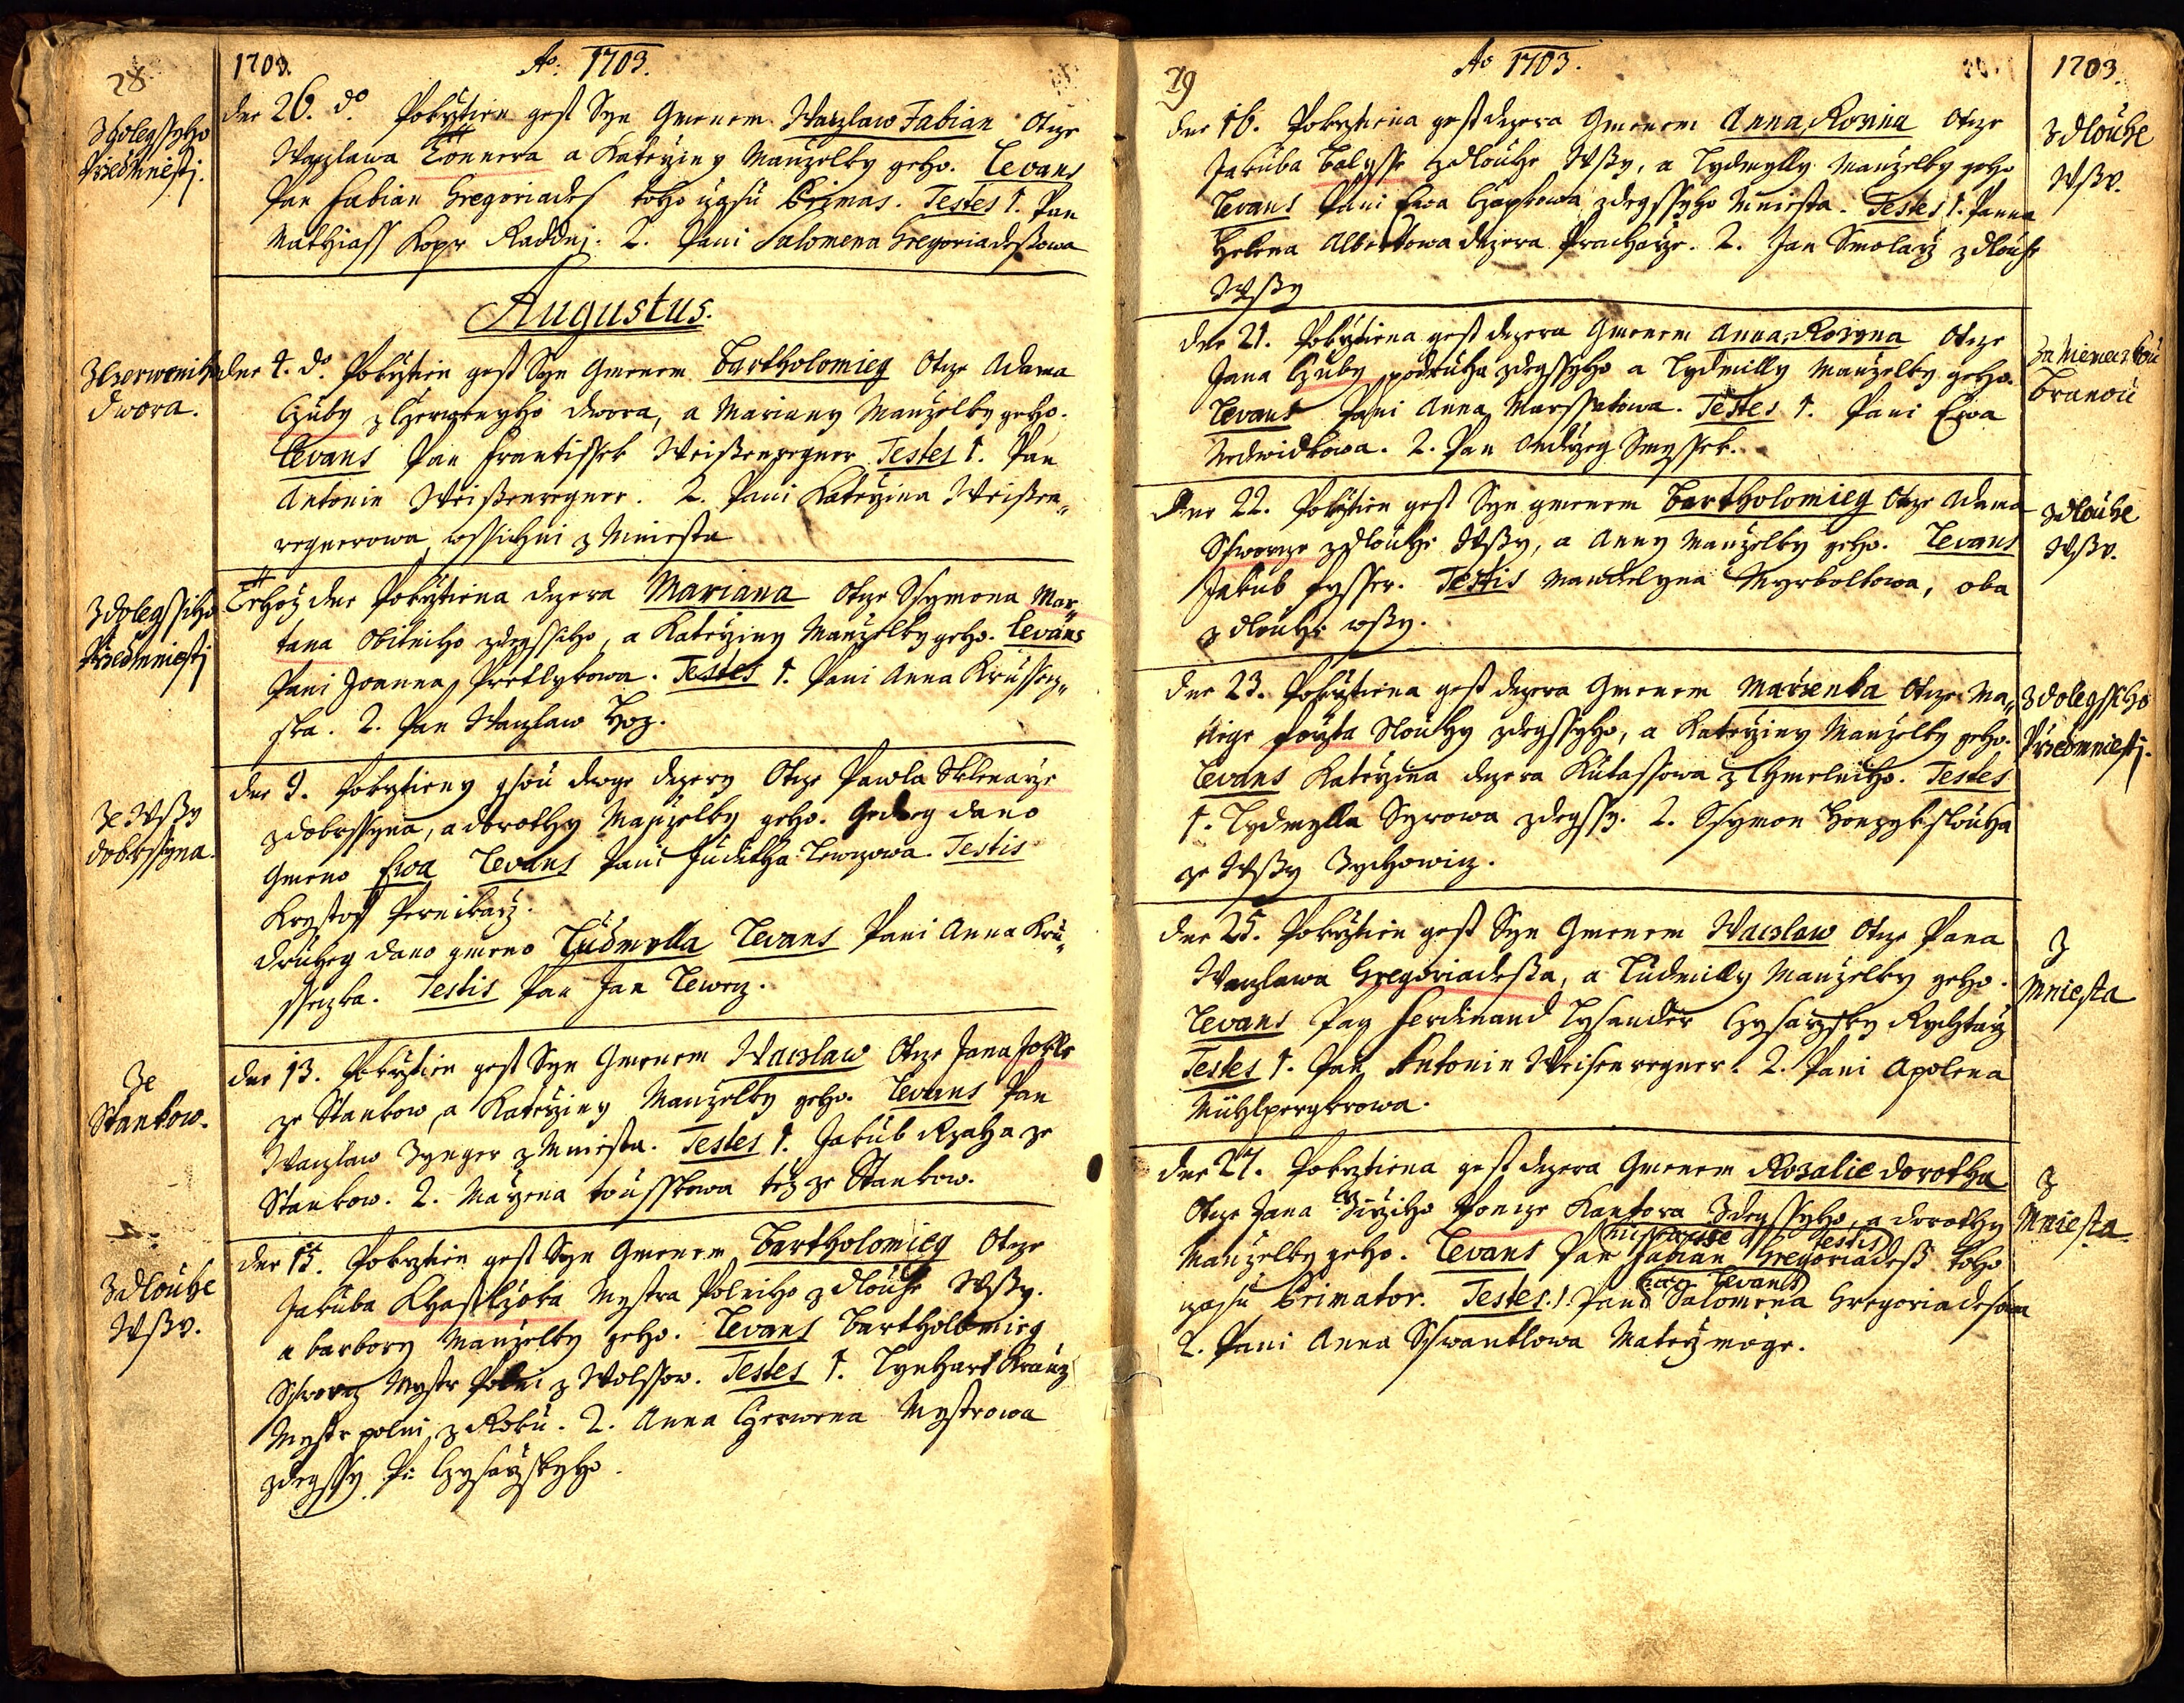 28
1703.
Ao. 1703.
Z dolegssyho
Przedmniestj.
dne 26. do. Pokrztien gest Syn Gmenem Waczlaw Fabian Otcze
Waczlawa Tonnera a Katerziny Manzelky geho. Levans
Pan Fabian Gregoriades toho czasu Primas. Testes 1. Pan
Mathiass Kopr Raddnj. 2. Pani Salomena Gregoriadessowa
Augustus.
Z Czerweniho
dwora.
dne 4. do. Pokrztien gest Syn Gmenem Bartholomieg Otcze Adama
Czuby z Czerwenyho dwora, a Mariany Manzelky geho.
Levans Pan Frantissek Weissenregner Testes 1. Pan
Antonin Weissenregner. 2. Pani Katerzina Weissen„
regnerowa wssichni z Mniesta
Z dolegssiho
Przedmniestj
Tehoz dne Pokrztiena dczera Mariana Otcze Ssymona Mar„
tana Obilniho zdegssiho, a Katerziny Manzelky geho. Levans
Pani Joanna Pretlykowa. Testes 1. Pani Anna Krussecz„
ska. 2. Pan Waczlaw Hoz.
Ze Wssy
dobrssyna.
dne 9. Pokrztieny gsou dwge dczery Otcze Pawla Sklenarze
z dobrssyna, a dorothy Manzelky geho. Gedneg dano
Gmeno Ewa Levans Pani Juditha Lewczowa. Testis
Krystoff Pernikarz.
druheg dano gmeno Ludmylla Levans Pani Anna Kru„
sseczka. Testis Pan Jan Lewcz.
Ze
Stankow.
dne 13. Pokrztien gest Syn Gmenem Waczlaw Otcze Jana Jokle
ze Stankow, a Katerziny Manzelky geho. Levans Pan
Waczlaw Zynger z Mniesta. Testes 1. Jakub Rzaha ze
Stankow. 2. Marzena tousskowa tez ze Stankow.
Z dlouhe
Wssy.
dne 15. Pokrztien gest Syn Gmenem Bartholomieg Otcze
Jakuba Mystra Polniho z dlouhe Wssy.
a barbory Manzelky geho. Levans Bartholomieg
Sswarcz Mystr Polni z Wolssow. Testes 1. Lynhart Krauz
Mystr polni z Roku. 2. Anna Czerwena Mystrowa
zdegssy Pr. Czysarzskyho.
29
Ao 1703.
1703.
dne 16. Pokrztiena gest dczera Gmenem Anna Rosina Otcze
Jakuba Balysse z dlouhe Wssy, a Lydmylly Manzelky geho
Levans Pani Ewa Czapkowa zdegssyho Mniesta. Testes 1. Panna
Helena Albertowa dczera Pracharze. 2. Jan Smolarz z dlouhe
Wssy
Z dlouhe
Wssy.
dne 21. Pokrztiena gest dczera Gmenem Anna Rozyna Otcze
Jana Czuby podruha zdegssyho a Lydmilly Manzelky geho.
Levans Pani Anna Marssatowa. Testes 1. Pani Ewa
Nedwidkowa. 2. Pan Ondrzeg Smyssek.
Za Niemeczkou
branou
dne 22. Pokrztien gest Syn gmenem Bartholomieg Otcze Adama
Sswarcze z dlouhe Wssy, a Anny Manzelky geho. Levans
Jakub Fysser. Testis Mandelyna Myrboltowa, oba
z dlouhe wssy.
Z dlouhe
Wssy.
dne 23. Pokrztiena gest dczera Gmenem Marzenka Otcze Ma„
tiege Foyta Slouhy zdegssyho, a Katerziny Manzelky geho.
Levans Katerzina dczera Kutassowa z Chmelniho. Testes
1. Lydmylla Syrowa zdegssy. 2. Ssymon Honzyk slouha
ze Wssy Zychowicz.
Z dolegssiho
Przedmniestj.
dne 25. Pokrztien gest Syn Gmenem Waczlaw Otcze Pana
Waczlawa Gregoriadessa, a Ludmilly Manzelky geho.
Levans Pan Ferdinand Lysander Czysarzsky Rychtarz
Testes 1. Pan Antonin Weisenregner. 2. Pani Apolena
Mühlpergkrowa.
Z
Mniesta
dne 27. Pokrztiena gest dczera Gmenem Rosalie dorotha
Otcze Jana Jirziho Poncze Kantora Zdegssyho, a dorothy
Manzelky geho. Levans Pan Fabian Gregoriadess toho
testis
czasu Primator. Testes. 1. Pani Salomena Gregoriadesowa
Levans
2. Pani Anna Sswantlowa Materz moge.
Z
Mniesta